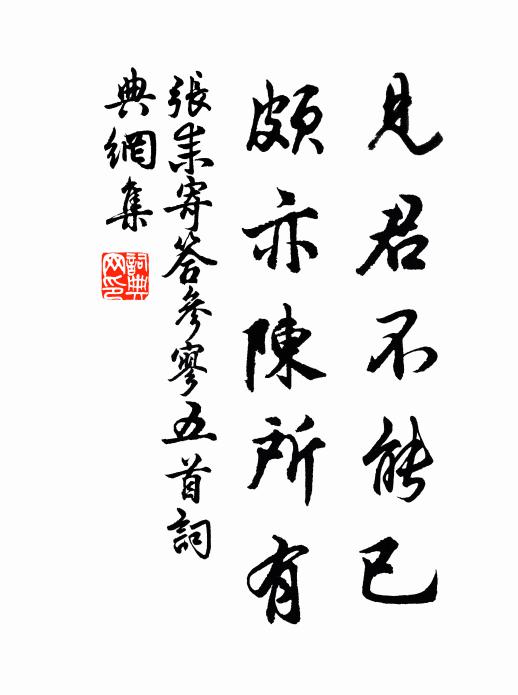 見君不能已
頗亦陳所有
張耒寄答參寥五首詞
典網集
詞典網印